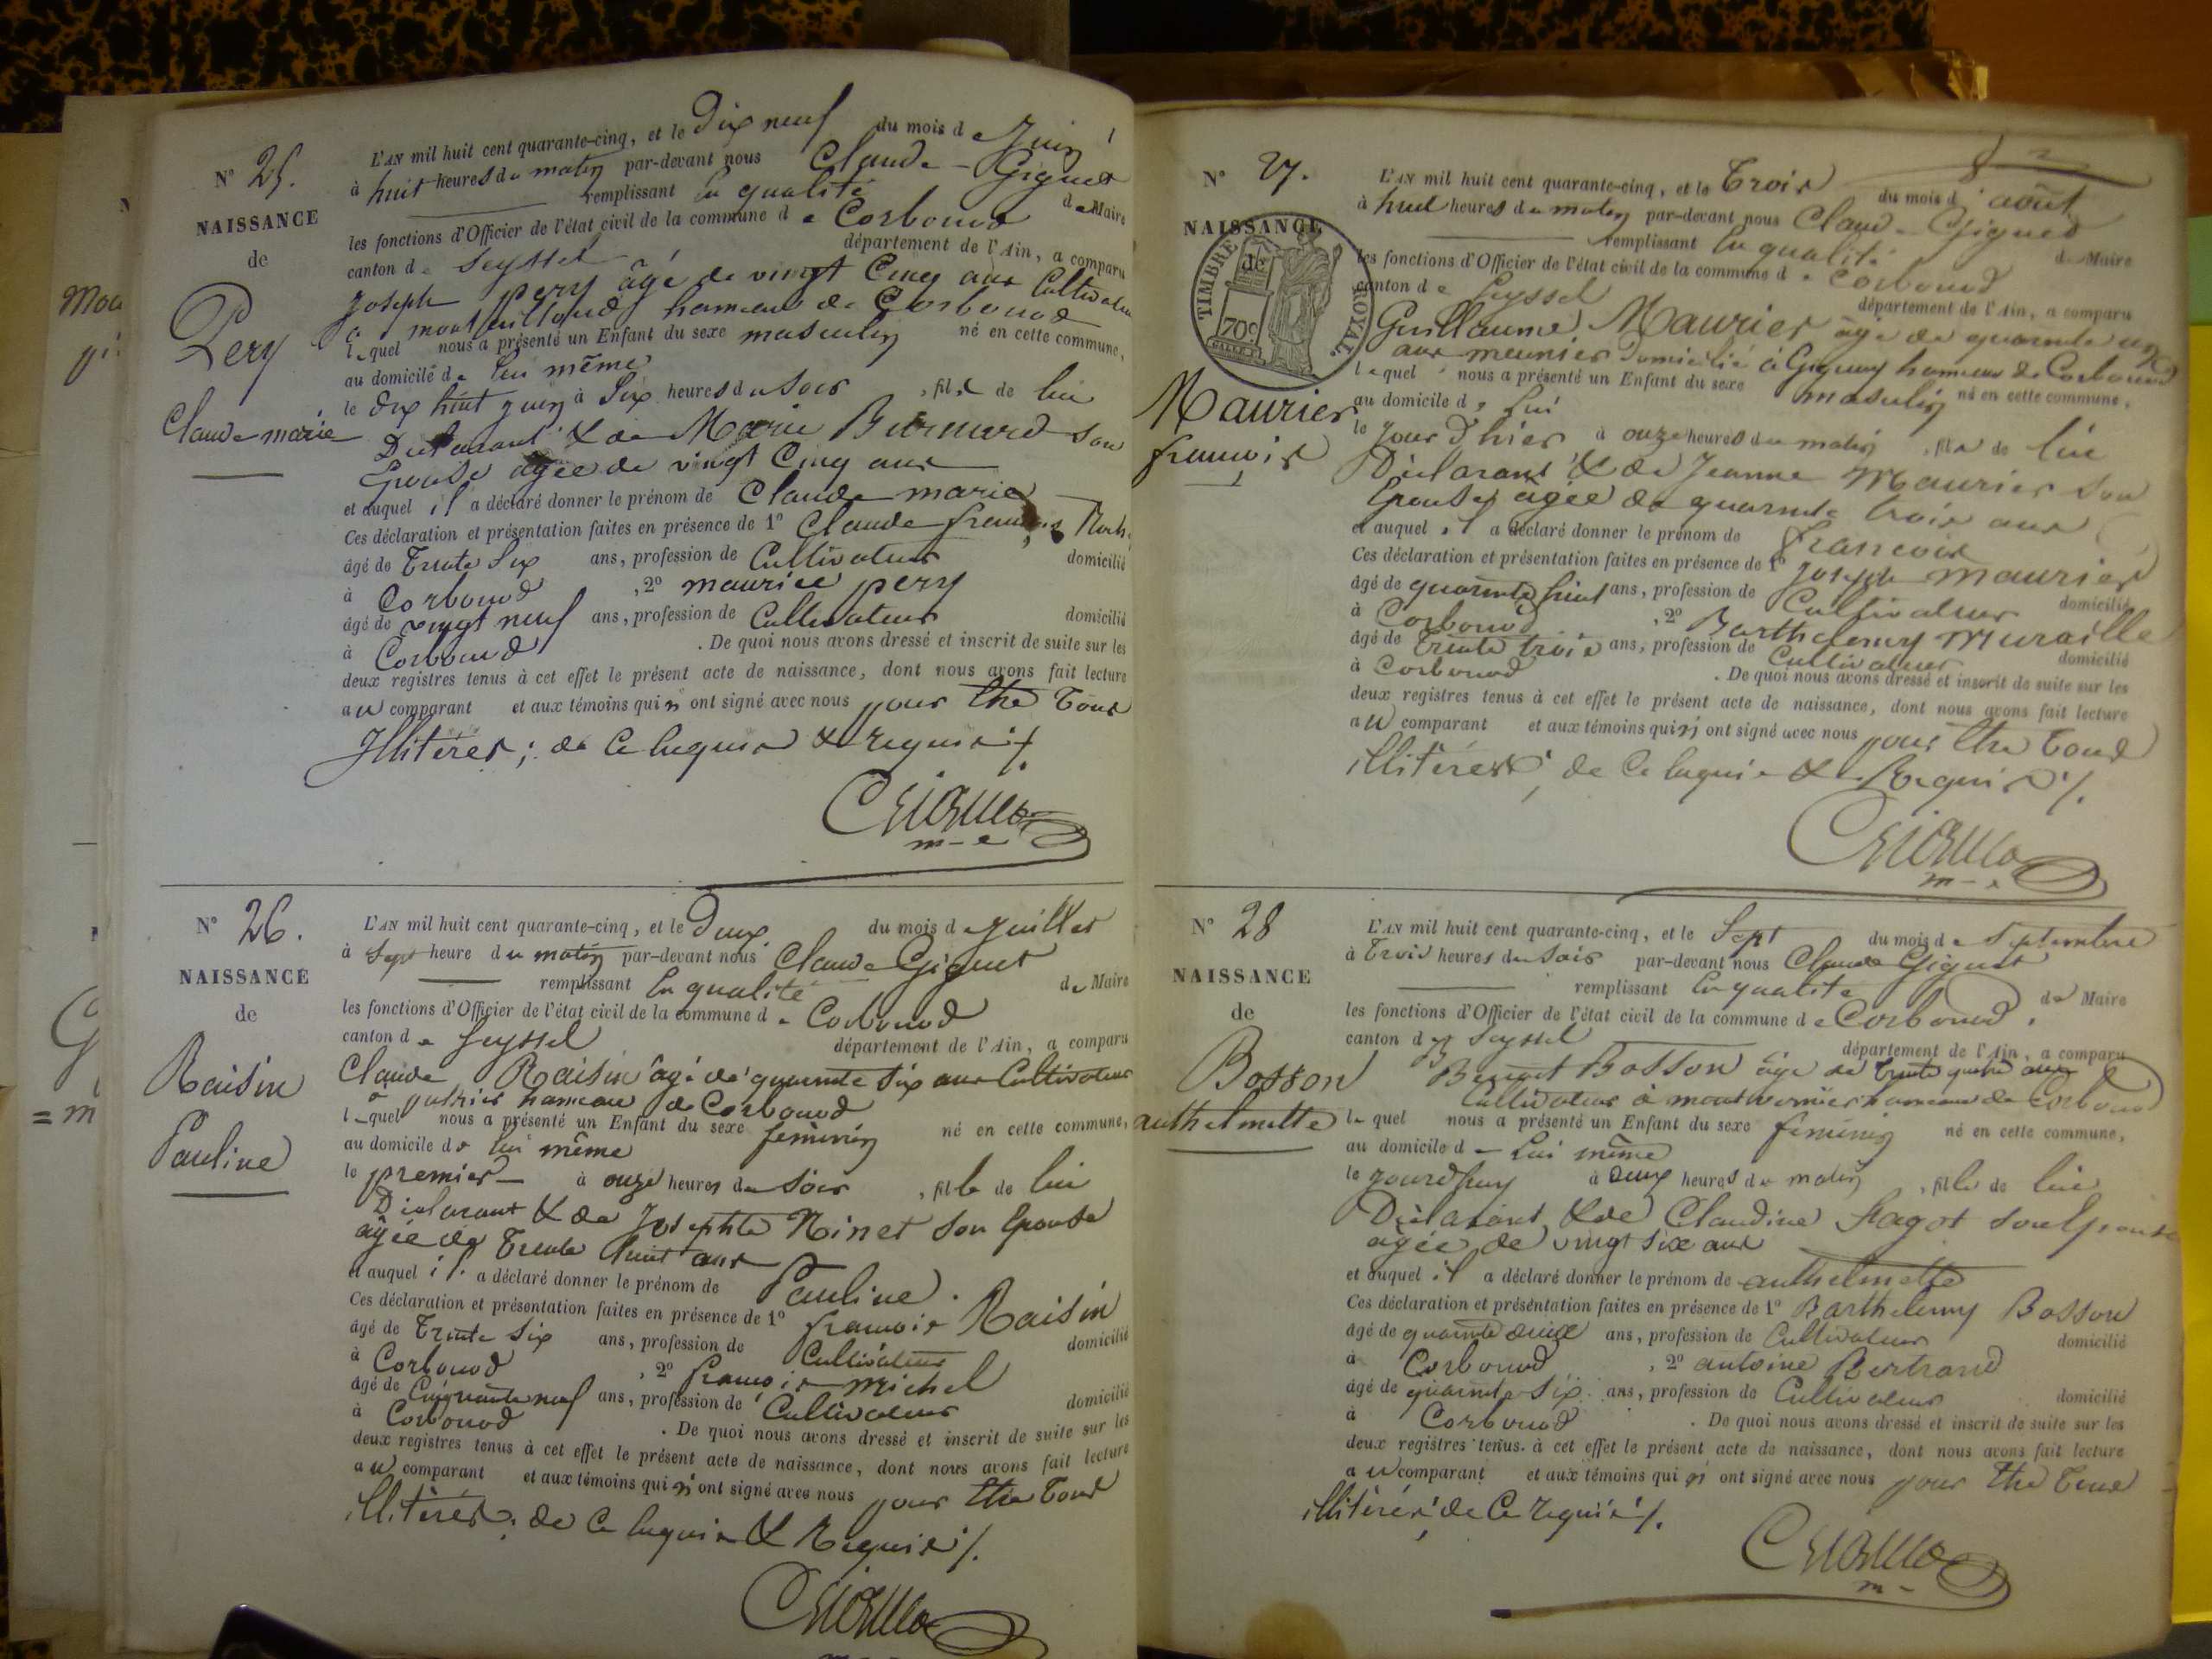 N° 25.
NAISSANCE
de
Pery
Claude marie
L'AN mil huit cent quarante-cinq, et le Dix neuf du mois de Juin
à huit heures du matin par-devant nous Claude Giguet
remplissant en qualité de Maire
les fonctions d'Officier de l'état civil de la commune de Corbonod
canton de Seyssel département de l'Ain, a comparu
Joseph pery âgé de vingt Cinq ans Cultivateur
à hameau de Corbonod
lequel nous a présenté un Enfant du sexe masculin né en cette commune,
au domicile de lui même
le dix huit juin à Six heures du Soir, fils de lui
Déclarant & de Marie Burnard son
Epouse agée de vingt Cinq ans
et auquel il a déclaré donner le prénom de Claude marie
Ces déclaration et présentation faites en présence de 1° Claude francois
âgé de Trente Six ans, profession de Cultivateur domicilié
à Corbonod, 2° maurice pery
âgé de vingt neuf ans, profession de Cultivateur domicilié
à Corbonod. De quoi nous avons dressé et inscrit de suite sur les
deux registres tenus à cet effet le présent acte de naissance, dont nous avons fait lecture
au comparant et aux témoins qui n'ont signé avec nous pour être Tous
Illitérés; de ce enquis & requis ./.
m-e
N° 26.
NAISSANCE
de
Raisin
Pauline
L'AN mil huit cent quarante-cinq, et le Deux du mois de Juillet
à Sept heure du matin par-devant nous Claude Giguet
remplissant en qualité de Maire
les fonctions d'Officier de l'état civil de la commune de Corbonod
canton de Seyssel département de l'Ain, a comparu
Claude Raisin âgé de quarante six ans Cultivateur
à hameau de Corbonod
lequel nous a présenté un Enfant du sexe féminin né en cette commune,
au domicile de lui même
le premier à onze heures du Soir, fille de lui
Déclarant & de Josephte Ninet son Epouse
agée de Trente huit ans
et auquel il a déclaré donner le prénom de Pauline.
Ces déclaration et présentation faites en présence de 1° francois Raisin
âgé de Trente Six ans, profession de Cultivateur domicilié
à Corbonod, 2° francois Michel
âgé de Cinquante neuf ans, profession de Cultivateur domicilié
à Corbonod. De quoi nous avons dressé et inscrit de suite sur les
deux registres tenus à cet effet le présent acte de naissance, dont nous avons fait lecture
au comparant et aux témoins qui n'ont signé avec nous pour être Tous
illitérés; de ce enquis & Requis ./.
N° 27.
NAISSANCE
de
TIMBRE ROYAL
70c
Maurier
francois
L'AN mil huit cent quarante-cinq, et le Trois du mois d'août
à huit heures du matin par-devant nous Claude Giguet
remplissant en qualité de Maire
les fonctions d'Officier de l'état civil de la commune de Corbonod
canton de Seyssel département de l'Ain, a comparu
Guillaume Maurier âgé de quarante un
ans meunier domicilié à Gignez hameau de Corbonod
lequel nous a présenté un Enfant du sexe masculin né en cette commune,
au domicile de lui
le jour d'hier à onze heures du matin, fils de lui
Déclarant & de Jeanne Maurier son
Epouse agée de quarante trois ans
et auquel il a déclaré donner le prénom de francois
Ces déclaration et présentation faites en présence de 1° Joseph Maurier
âgé de quarante huit ans, profession de Cultivateur domicilié
à Corbonod, 2° Barthelemy Muraille
âgé de Trente trois ans, profession de Cultivateur domicilié
à Corbonod. De quoi nous avons dressé et inscrit de suite sur les
deux registres tenus à cet effet le présent acte de naissance, dont nous avons fait lecture
au comparant et aux témoins qui n'ont signé avec nous pour être Tous
illitérés; de ce enquis & Requis ./.
N° 28
NAISSANCE
de
Bosson
anthelmette
L'AN mil huit cent quarante-cinq, et le Sept du mois de Septembre
à Trois heures du Soir par-devant nous Claude Giguet
remplissant en qualité de Maire
les fonctions d'Officier de l'état civil de la commune de Corbonod.
canton de Seyssel département de l'Ain, a comparu
Benoit Bosson âgé de trente quatre ans
Cultivateur à hameau de Corbonod
lequel nous a présenté un Enfant du sexe féminin né en cette commune,
au domicile de Lui même
le jourd'huy à deux heures du matin, fille de lui
Déclarant, & de Claudine fagot son Epouse
agée de vingt six ans
et auquel il a déclaré donner le prénom de anthelmette
Ces déclaration et présentation faites en présence de 1° Barthelemy Bosson
âgé de quarante ans, profession de Cultivateur domicilié
à Corbonod, 2° antoine Bertrand
âgé de quarante Six ans, profession de Cultivateur domicilié
à Corbonod. De quoi nous avons dressé et inscrit de suite sur les
deux registres tenus à cet effet le présent acte de naissance, dont nous avons fait lecture
au comparant et aux témoins qui n'ont signé avec nous pour être Tous
illitérés de ce requis ./.